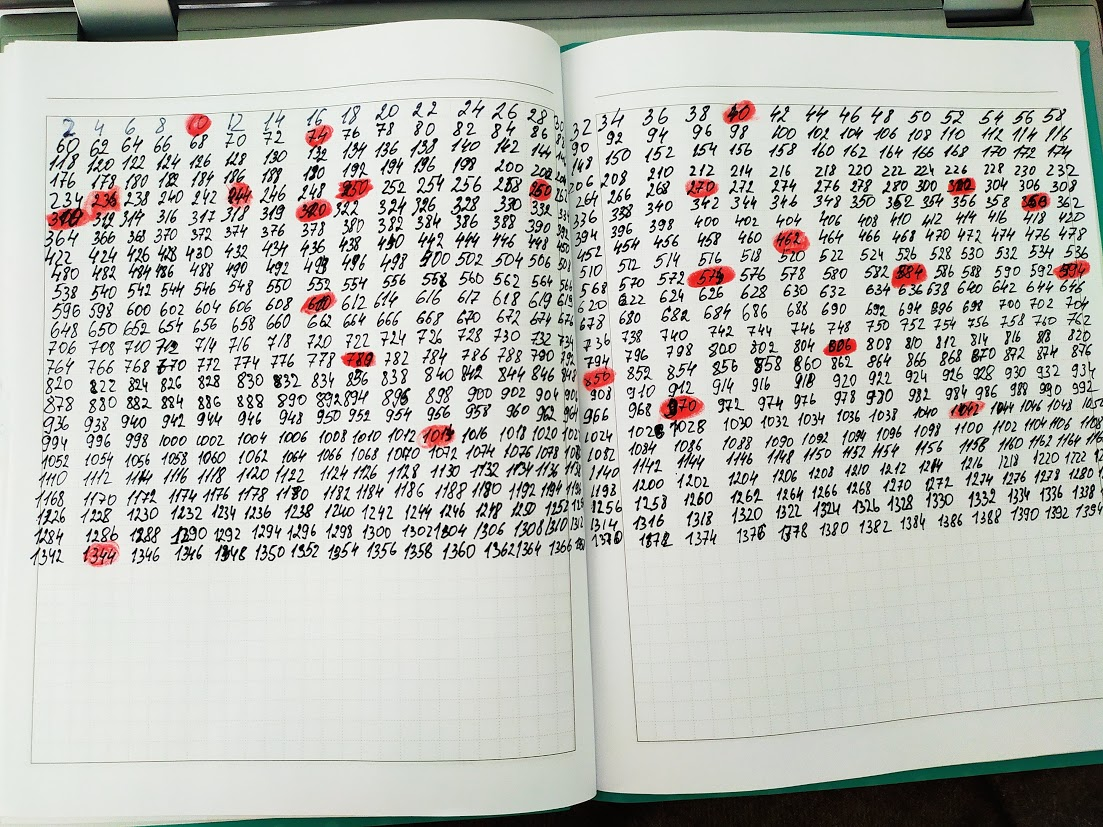 2 4 6 8 10 12 14 16 18 20 22 24 26 28 30 32 34 36 38 40 42 44 46 48 50 52 54 56 58
60 62 64 66 68 70 72 74 76 78 80 82 84 86 90 92 94 96 98 100 102 104 106 108 110 112 114 116
118 120 122 124 126 128 130 132 134 136 138 140 142 144 148 150 152 154 156 158 160 162 164 166 168 170 172 174
176 178 180 182 184 186 188 190 192 194 196 198 200 202 206 208 210 212 214 216 218 220 222 224 226 228 230 232
234 236 238 240 242 244 246 248 250 252 254 256 258 260 266 268 270 272 274 276 278 280 300 302 304 306 308
310 312 314 316 317 318 319 320 322 324 326 328 330 332 336 338 340 342 344 346 348 350 352 354 356 358 360 362
364 366 368 370 372 374 376 378 380 382 384 386 388 390 392 394 396 398 400 402 404 406 408 410 412 414 416 418 420
422 424 426 428 430 432 434 436 438 440 442 444 446 448 450 452 454 456 458 460 462 464 466 468 470 472 474 476 478
480 482 484 486 488 490 492 494 496 498 500 502 504 506 508 510 512 514 516 518 520 522 524 526 528 530 532 534 536
538 540 542 544 546 548 550 552 554 556 558 560 562 564 568 570 572 574 576 578 580 582 584 586 588 590 592 594
596 598 600 602 604 606 608 610 612 614 616 617 618 619 619 620 622 624 626 628 630 632 634 636 638 640 642 644 646
648 650 652 654 656 658 660 662 664 666 668 670 672 674 676 678 680 682 684 686 688 690 692 694 696 698 700 702 704
706 708 710 712 714 716 718 720 722 724 726 728 730 732 734 736 738 740 742 744 746 748 750 752 754 756 758 760 762
764 766 768 670 772 774 776 778 780 782 784 786 788 790 792 794 796 798 800 802 804 806 808 810 812 814 816 818 820
820 822 824 826 828 830 832 834 856 838 840 842 844 846 848 850 852 854 856 858 860 862 864 866 868 870 872 874 876
878 880 882 884 886 888 890 892 894 896 898 900 902 904 908 910 912 914 916 918 920 922 924 926 928 930 932 934
936 938 940 942 944 946 948 950 952 954 956 958 960 962 964 966 968 970 972 974 976 978 980 982 984 986 988 990 992
994 996 998 1000 1002 1004 1006 1008 1010 1012 1014 1016 1018 1020 1024 1026 1028 1030 1032 1034 1036 1038 1040 1042 1044 1046 1048 1050
1052 1054 1056 1058 1060 1062 1064 1066 1068 1070 1072 1074 1076 1078 1082 1084 1086 1088 1090 1092 1094 1096 1098 1100 1102 1104 1106 1108
1110 1112 1114 1116 1118 1120 1122 1124 1126 1128 1130 1132 1134 1136 1140 1142 1144 1146 1148 1150 1152 1154 1156 1158 1160 1162 1164 1166
1168 1170 1172 1174 1176 1178 1180 1182 1184 1186 1188 1190 1192 1194 1198 1200 1202 1204 1206 1208 1210 1212 1214 1216 1218 1220 1222
1226 1228 1230 1232 1234 1236 1238 1240 1242 1244 1246 1248 1250 1252 1256 1258 1260 1262 1264 1266 1268 1270 1272 1274 1276 1278 1280
1284 1286 1288 1290 1292 1294 1296 1298 1300 1302 1304 1306 1308 1310 1314 1316 1318 1320 1322 1324 1326 1328 1330 1332 1334 1336 1338
1342 1344 1346 1346 1348 1350 1352 1354 1356 1358 1360 1362 1364 1366 1370 1372 1374 1376 1378 1380 1382 1384 1386 1388 1390 1392 1394